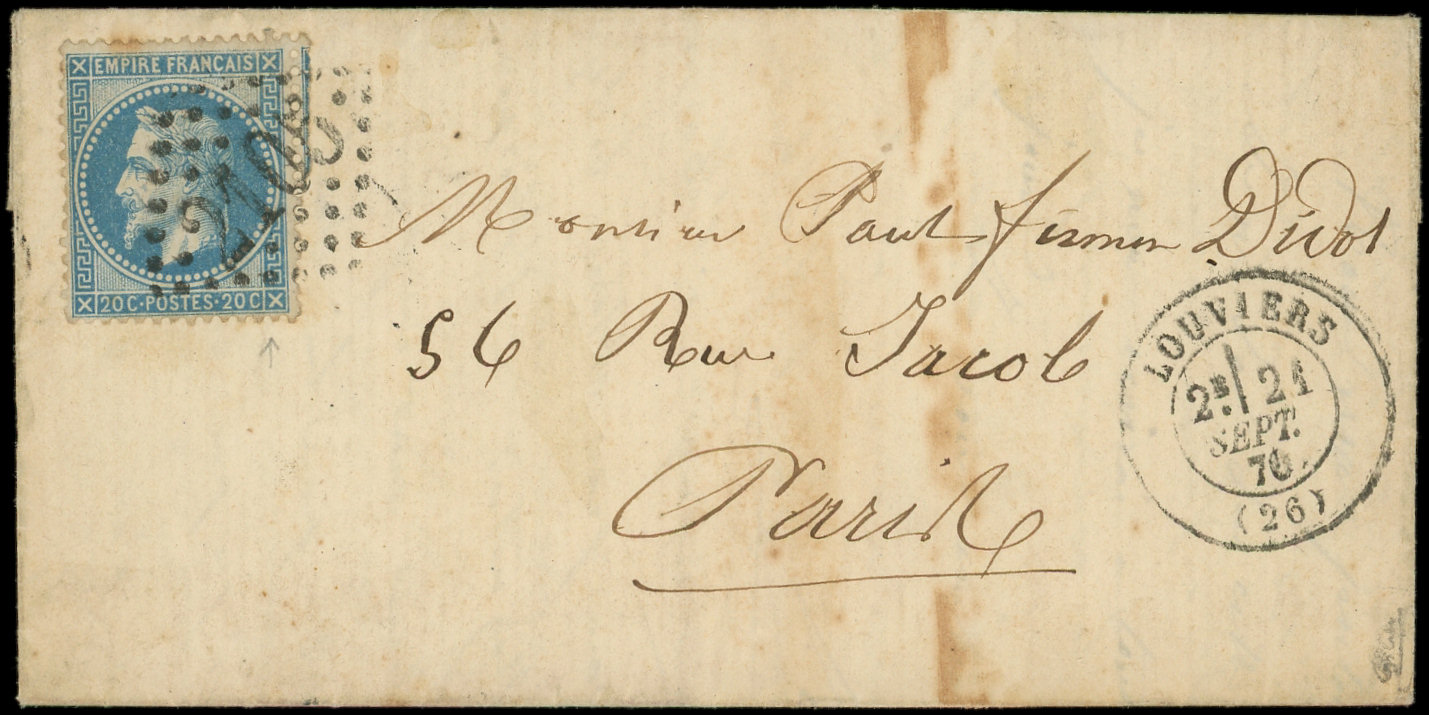 EMPIRE FRANCAIS
20C·POSTES·20C
2108
Monsieur Paul firmin Didot
56 Rue Jacob
Paris
LOUVIERS
2E 21
SEPT.
70
(26)